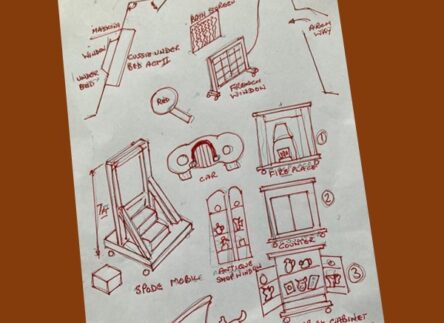 BATH SCREEN
MASKING
WINDOW
UNDER
BED ACT II
UNDER
ARCH
WAY
FRENCH
WINDOW
1
CAR
FIRE PLACE
2
7FT
COUNTER
ANTIQUE
SHOP WINDOW
SPODE MOBILE
3
CABINET